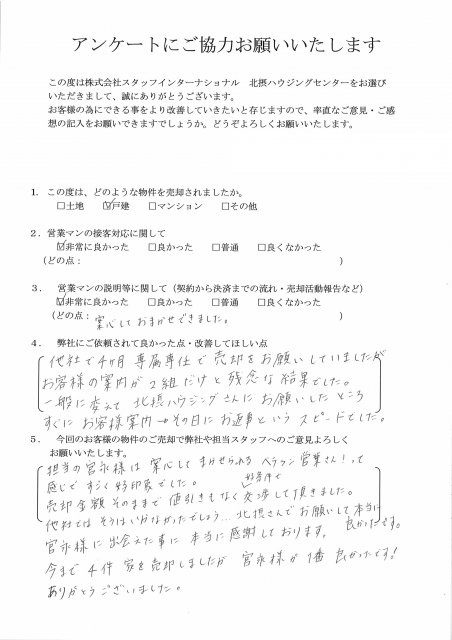 アンケートにご協力お願いいたします
この度は株式会社スタッフインターナショナル 北摂ハウジングセンターをお選び
いただきまして、誠にありがとうございます。
お客様の為にできる事をより改善していきたいと存じますので、率直なご意見・ご感
想の記入をお願いできますでしょうか。どうぞよろしくお願いいたします。
1. この度は、どのような物件を売却されましたか。
□土地 ☑戸建 □マンション □その他
2. 営業マンの接客対応に関して
☑非常に良かった □良かった □普通 □良くなかった
(どの点: )
3. 営業マンの説明等に関して(契約から決済までの流れ・売却活動報告など)
☑非常に良かった □良かった □普通 □良くなかった
(どの点: 安心しておまかせできました。 )
4. 弊社にご依頼されて良かった点・改善してほしい点
他社で4ヶ月 専属専任で売却をお願いしていましたが
お客様の案内が2組だけと残念な結果でした。
一般に変えて 北摂ハウジングさんにお願いしたところ
すぐにお客様案内→その日にお返事というスピードでした。
5. 今回のお客様の物件のご売却で弊社や担当スタッフへのご意見よろしく
お願いいたします。
担当の宮永様は 安心してまかせられる ベテラン営業さん!って
感じですごく好印象でした。
売却金額そのままで 値引きもなく 好条件で 交渉して頂きました。
他社では そうはいかなかったでしょう… 北摂さんでお願いして本当に
良かったです。
宮永様に出会えた事に 本当に感謝しております。
今まで4件 家を売却しましたが 宮永様が1番 良かったです!
ありがとうございました。